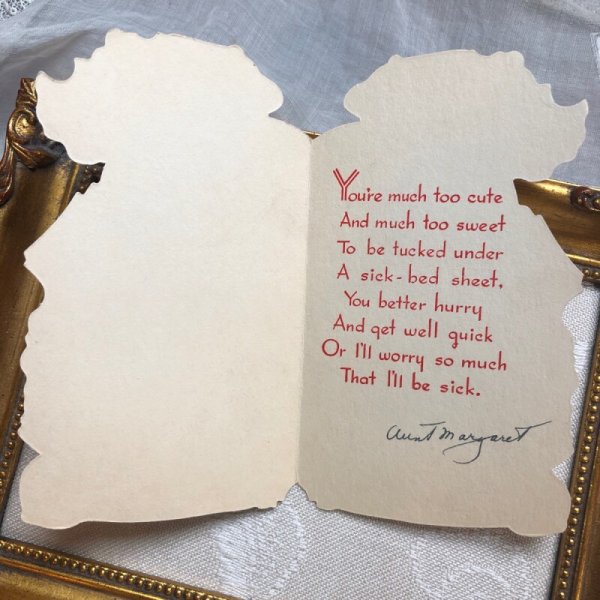 You're much too cute
And much too sweet
To be tucked under
A sick-bed sheet,
You better hurry
And get well quick
Or I'll worry so much
That I'll be sick.
Aunt Margaret